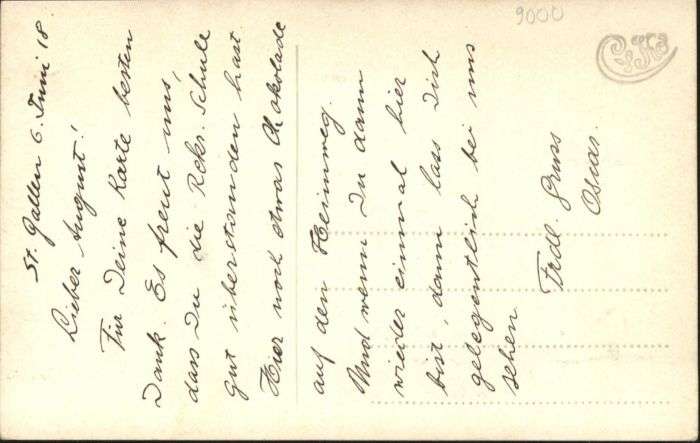 St. Gallen 6. Juni 18
Lieber August!
Für Deine Karte besten
Dank. Es freut uns,
dass Du die Rekr. Schule
gut überstanden hast.
Hier noch etwas Chokolade
auf den Heimweg.
Und wenn Du dann
wieder einmal hier
bist, dann lass Dich
gelegentlich bei uns
sehen
Frdl. Gruss
Oscar.
9000